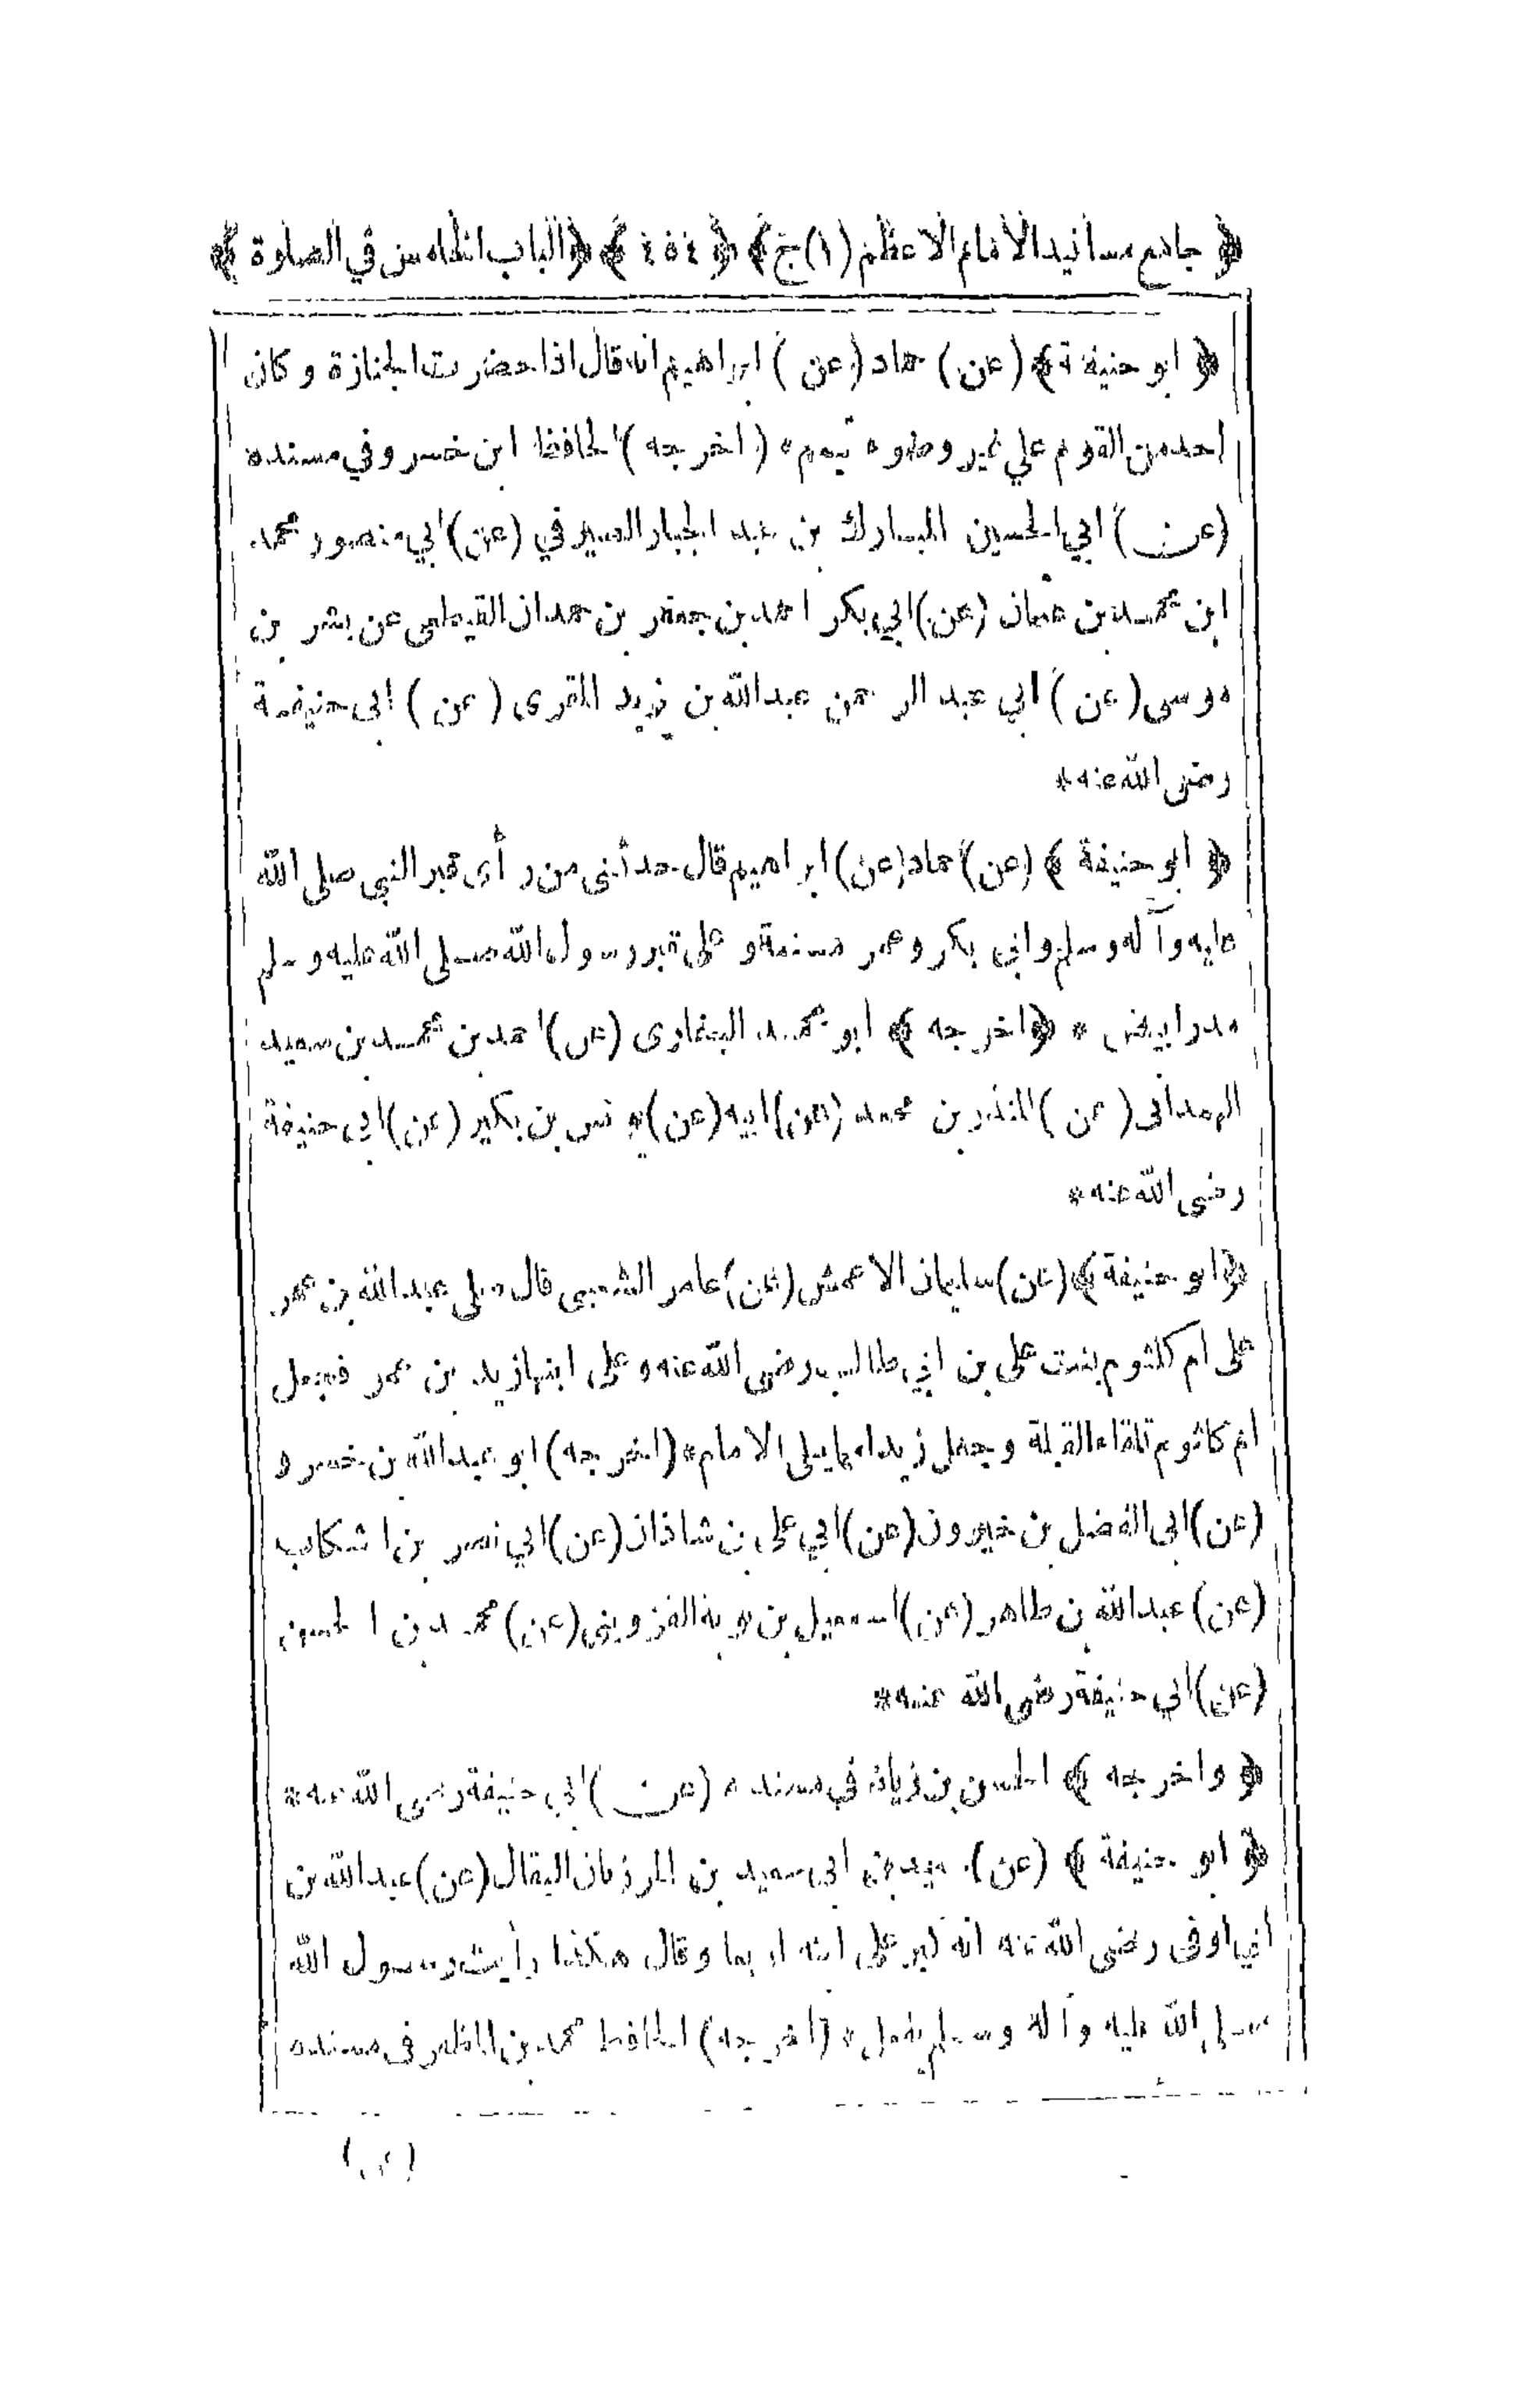 ﴿ جامع مسانيد الامام الاعظم (١) ج ﴾ ﴿ ٤٥٤ ﴾ ﴿ الباب الخامس في الصلوة ﴾
﴿ ابو حنيفة ﴾ (عن) حماد (عن) ابراهيم انه قال اذا حضرت الجنازة وكان
احد من القوم على غير وضوء تيمم * (اخرجه) الحافظ ابن خسرو في مسنده
(عن) ابي الحسين المبارك بن عبد الجبار الصيرفي (عن) ابي منصور محمد
ابن محمد بن عثمان (عن) ابي بكر احمد بن جعفر بن حمدان القطيعى عن بشر بن
موسى (عن) ابي عبد الرحمن عبدالله بن يزيد المقرى (عن) ابى حنيفة
رضى الله عنه *
﴿ ابو حنيفة ﴾ (عن) حماد (عن) ابراهيم قال حدثنى من رأى قبر النبي صلى الله
عليه وآله وسلم وابي بكر وعمر مسنمة و على قبر رسول الله صلى الله عليه وسلم
مدر ابيض * ﴿ اخرجه ﴾ ابو محمد البخارى (عن) احمد بن محمد بن سعيد
الهمدانى (عن) المنذر بن محمد (عن) ابيه (عن) يونس بن بكير (عن) ابى حنيفة
رضى الله عنه *
﴿ ابو حنيفة ﴾ (عن) سليمان الاعمش (عن) عامر الشعبى قال صلى عبدالله بن عمر
على ام كلثوم بنت على بن ابي طالب رضى الله عنه وعلى ابنها زيد بن عمر فجعل
ام كلثوم تلقاء القبلة وجعل زيدا مما يلى الامام * (اخرجه) ابو عبدالله بن خسرو
(عن) ابى الفضل بن خيرون (عن) ابي على بن شاذان (عن) ابي نصر بن اشكاب
(عن) عبدالله بن طاهر (عن) اسمعيل بن توبة القزوينى (عن) محمد بن الحسن
(عن) ابي حنيفة رضى الله عنه *
﴿ واخرجه ﴾ الحسن بن زياد في مسنده (عن) ابي حنيفة رضى الله عنه *
﴿ ابو حنيفة ﴾ (عن) سعيد بن ابى سعيد بن المرزبان البقال (عن) عبدالله بن
ابي اوفى رضى الله عنه انه كبر على ابنه اربعا وقال هكذا رأيت رسول الله
صلى الله عليه وآله وسلم يفعل * (اخرجه) الحافظ محمد بن المظفر فى مسنده
(عن)